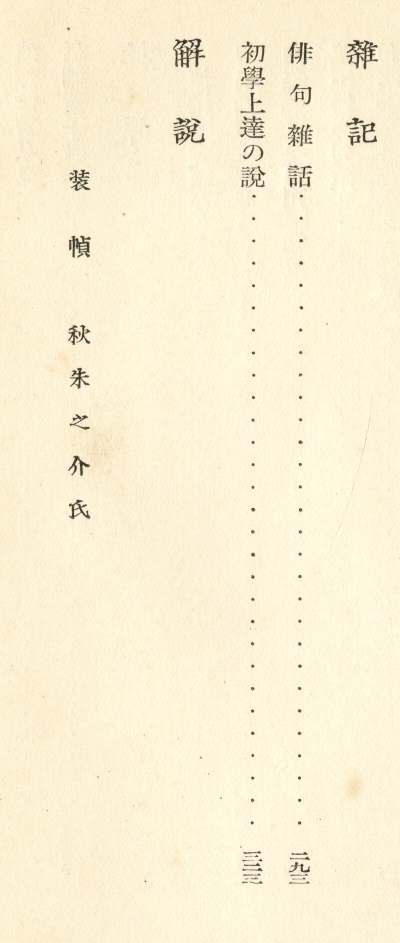 雜記
俳句雜話・・・・・・・・・・・・・・・・・・・・・・・・・・・・・二九三
初學上達の說・・・・・・・・・・・・・・・・・・・・・・・・・・・・・三二三
解說
装幀 秋朱之介氏